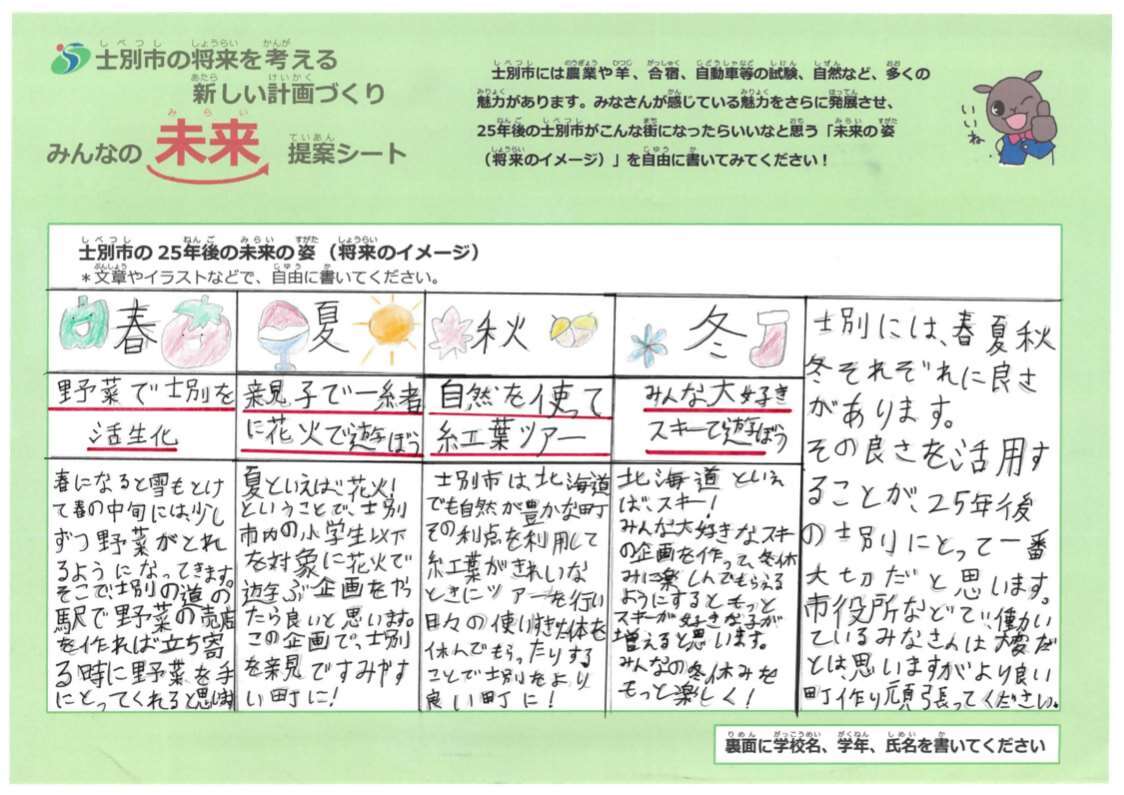 士別市の将来を考える
新しい計画づくり
みんなの 未来 提案シート
士別市には農業や羊、合宿、自動車等の試験、自然など、多くの
魅力があります。みなさんが感じている魅力をさらに発展させ、
25年後の士別市がこんな街になったらいいなと思う「未来の姿
（将来のイメージ）」を自由に書いてみてください！
いいね
士別市の25年後の未来の姿（将来のイメージ）
＊文章やイラストなどで、自由に書いてください。
春
野菜で士別を
活生化
春になると雪もとけ
て春の中旬には、少し
ずつ野菜がとれ
るようになってきます。
そこで、士別の道の
駅で野菜の売店
を作れば立ち寄
る時に野菜を手
にとってくれると思います
夏
親子で一緒
に花火で遊ぼう
夏といえば花火！
ということで、士別
市内の小学生以下
を対象に花火で
遊ぶ企画をやっ
たら良いと思います。
この企画で、士別
を親見ですみやす
い町に！
秋
自然を使って
紅葉ツアー
士別市は北海道
でも自然が豊かな町
その利点を利用して
紅葉がきれいな
ときにツアーを行い
日々の使いすぎた体を
休んでもらったりする
ことで士別をより
良い町に！
冬
みんな大好き
スキーで遊ぼう
北海道といえ
ば、スキー！
みんな大好きなスキー
の企画を作って、冬休
みに楽しんでもらえる
ようにするともっと
スキーが好きな子が
増えると思います。
みんなの冬休みを
もっと楽しく！
士別には、春夏秋
冬それぞれに良さ
があります。
その良さを活用す
ることが、25年後
の士別にとって一番
大切だと思います。
市役所などで、働い
ているみなさんは大変だ
とは、思いますがより良い
町作り頑張ってください。
裏面に学校名、学年、氏名を書いてください